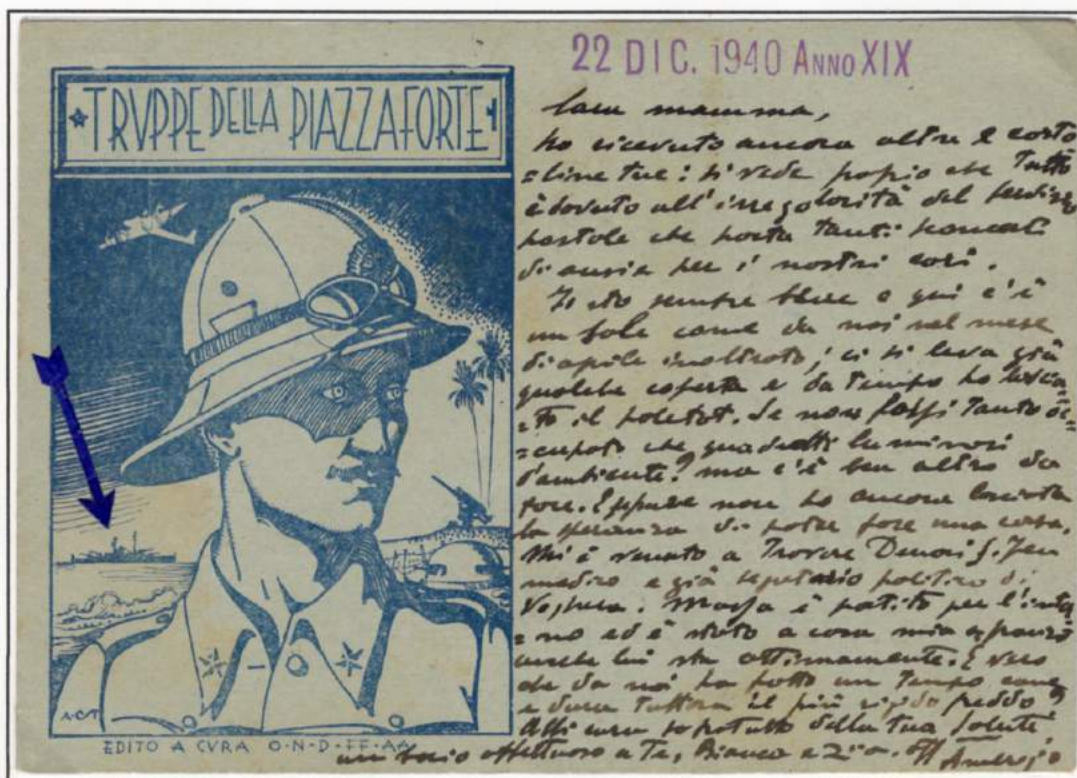 22 DIC. 1940 ANNO XIX
TRVPPE DELLA PIAZZAFORTE
Cara mamma,
ho ricevuto ancora altre 2 carto
=line tue: si vede propio che tutto
è dovuto all'irregolarità del servizio
postale che porta tanti
di ansia per i nostri cari.
Io sto sempre bene e qui c'è
un sole come da noi nel mese
di aprile inoltrato; ci si leva già
qualche coperta e da tempo ho lascia=
=to il paletot. Se non fossi tanto oc=
=cupato che quadretti luminosi
d'ambiente! ma c'è ben altro da
fare. Eppure non ho ancora lasciata
la speranza di poter fare una cosa.
Mi è venuto a trovare
medico e già segretario politico di
Voghera. è partito per l'inter
=no ed è stato a casa mia a pranzo
anche lui sta ottimamente. È vero
che da noi ha fatto un tempo cane
e dura tuttora il più rigido freddo?
Assicura sopratutto della tua salute
un bacio affettuoso a te, Bianca e zia. Aff Ambrogio
A·C·T·
EDITO A CVRA O·N·D·FF·AA·